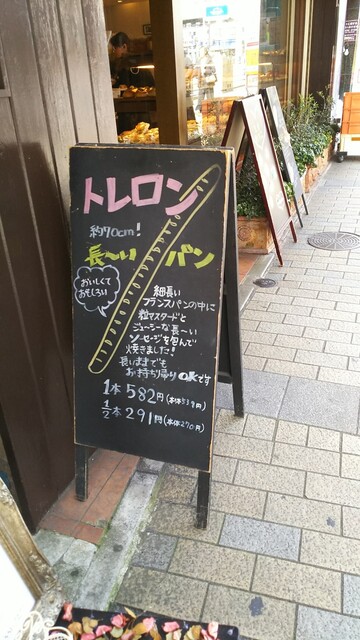 トレロン
約70cm!
長〜いパン
おいしくて
おもしろい
細長い
フランスパンの中に
粒マスタードと
ジューシーな長〜い
ソーセージを包んで
焼きました!
長いままでも
お持ち帰りOKです
1本 582円(本体539円)
1/2本 291円(本体270円)